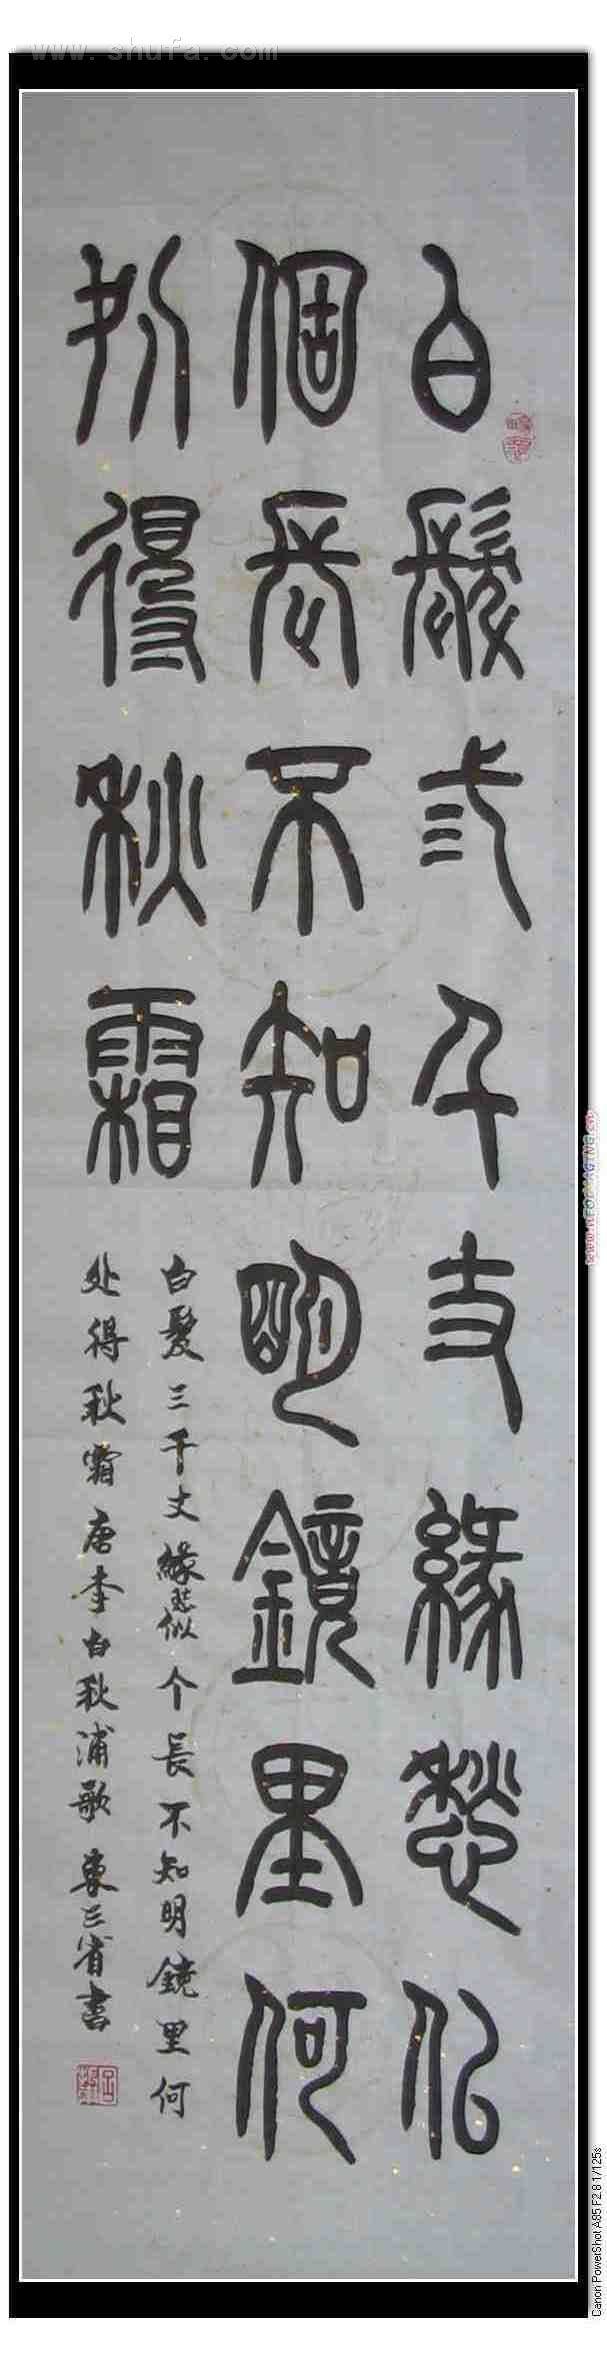 www.shufa.com
白髮弎千丈緣愁似
個長不知明鏡里何
処得秋霜
白髮三千丈緣愁似个長不知明鏡里何
处得秋霜唐李白秋浦歌東三省書
www.NEOIMAGING.cn
Canon PowerShot A85 F2.8 1/125s